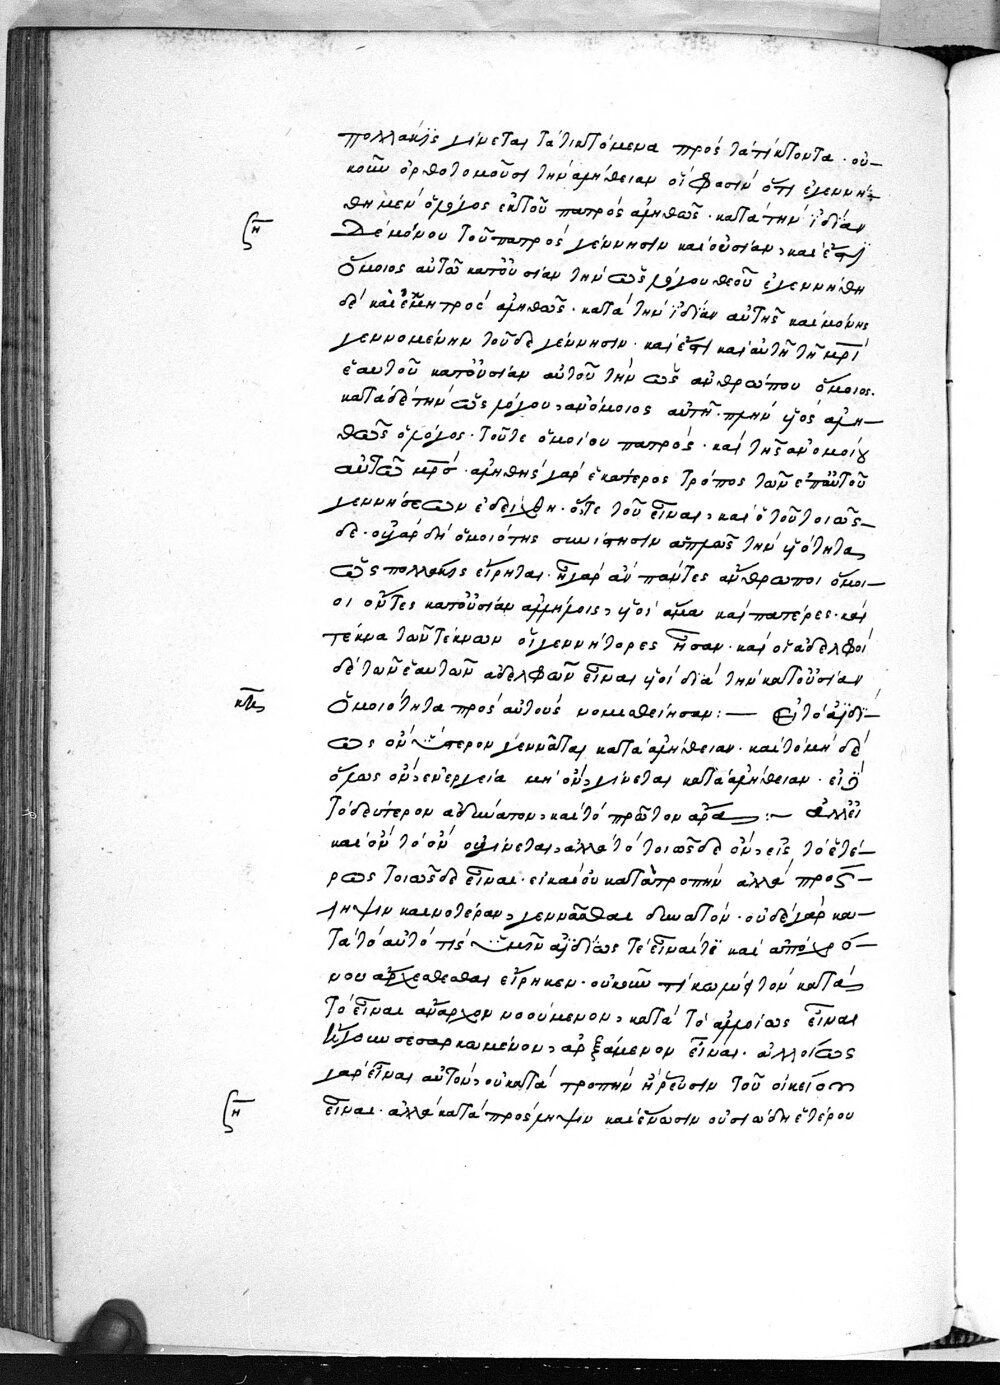 πολλάκις γίνεται τὰ τικτόμενα πρὸς τὰ τίκτοντα· οὐ-
κοῦν ὀρθοτομοῦσι τὴν ἀλήθειαν οἵ φασιν ὅτι ἐγεννή-
θη μὲν ὁ λόγος ἐκ τοῦ πατρὸς ἀληθῶς· κατὰ τὴν ἰδίαν
δὲ μόνου τοῦ πατρὸς γέννησιν καὶ οὐσίαν, καὶ ἔστι
ὅμοιος αὐτῶ κατ' οὐσίαν τὴν ὡς λόγου θεοῦ ἐγεννήθη
δὲ καὶ ἐκ μητρὸς ἀληθῶς· κατὰ τὴν ἰδίαν αὐτῆς καὶ μόνης
γενομένην τοῦδε γέννησιν· καὶ ἔστι καὶ αὐτῆ τῆ μρὶ
ἑαυτοῦ κατ' οὐσίαν αὐτοῦ τὴν ὡς ἀνθρώπου ὅμοιος.
κατὰ δὲ τὴν ὡς λόγου, ἀνόμοιος αὐτῆ· πλὴν υἱὸς ἀλη-
θῶς ὁ λόγος· τοῦ τε ὁμοίου πατρός· καὶ τῆς ἀνομοίου
αὐτῶ μρσ· ἀληθὴς γὰρ ἑκάτερος τρόπος τῶν ἐπ' αὐτοῦ
γεννήσεων ἐδείχθη· ὅ τε τοῦ εἶναι, καὶ ὁ τοῦ τοιῶς-
δε· οὐ γὰρ δὴ ὁμοιότης συνίστησιν ἁπλῶς τὴν υἱότητα
ὡς πολλάκις εἴρηται· ἢ γὰρ ἂν πάντες ἄνθρωποι ὅμοι-
οι ὄντες κατ' οὐσίαν ἀλλήλοις, υἱοὶ ἅμα καὶ πατέρες· καὶ
τέκνα τῶν τέκνων οἱ γεννήτορες ἦσαν· καὶ οἱ ἀδελφοὶ
δὲ τῶν ἑαυτῶν ἀδελφῶν εἶναι υἱοὶ διὰ τὴν κατ' οὐσίαν
ὁμοιότητα πρὸς αὐτοὺς :— Εἰ τὸ ἀϊδί-
ως ὂν ὕστερον γεννᾶται κατὰ ἀλήθειαν· καὶ τὸ μὴ δὲ
ὅλως ὂν, ἐνεργεία μὴ ὂν, γίνεται κατὰ ἀλήθειαν· εἰ
τὸ δεύτερον ἀδύνατον, καὶ τὸ πρῶτον ἄρα :— ἀλλ' εἰ
καὶ ὂν τὸ ὂν οὐ γίνεται, ἀλλὰ τὸ τοιῶσδε ὂν, εἰς τὸ ἑτέ-
ρως τοιῶσδε εἶναι· εἰ καὶ οὐ κατὰ τροπὴν ἀλλὰ πρόσ-
ληψιν καινοτέραν, γεννᾶσθαι δυνατόν· οὐδὲ γὰρ κα-
τὰ τὸ αὐτό τις ἡμῖν ἀϊδίως τε εἶναί τε καὶ ἀπὸ χρό-
νου ἄρχεσθαι εἴρηκεν· οὐκοῦν κατὰ
τὸ εἶναι ἄναρχον νοούμενον, κατὰ τὸ ἀλλοίως εἶναι
λόγον σεσαρκωμένον, ἀρξάμενον εἶναι· ἀλλοίως
γὰρ εἶναι αὐτὸν, οὐ κατὰ τροπὴν ἢ ῥεῦσιν τοῦ οἰκείου
εἶναι· ἀλλὰ κατὰ πρόσληψιν καὶ ἕνωσιν οὐσιώδη ἑτέρου